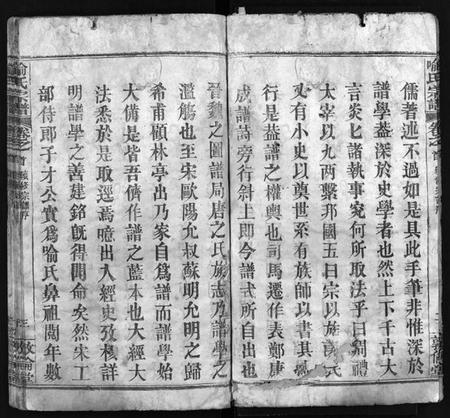 儒著述不過如是具此手筆非惟深於
譜學蓋深於史學者也然上下千古大
言炎炎諸執事究何所取法乎曰周禮
太宰以九兩繫邦國五曰宗以族得民
又有小史以奠世系有族師以書其學
行是蓋譜之權輿也司馬遷作表鄭康
成譜詩旁行斜上即今譜式所自出也
晉魏之圖譜局唐之氏族志乃譜學之
濫觴也至宋歐陽允叔蘇明允明之歸
希甫顧林亭出乃家自爲譜而譜學始
大備是皆吾儕作譜之藍本也大經大
法悉於是取焉噫出入經史攷核詳
明譜學之善建銘旣得聞命矣然宋工
部侍郎子才公實爲喻氏鼻祖閱年數
喻氏宗譜
卷之首
喻氏宗譜
卷之首
敦倫堂